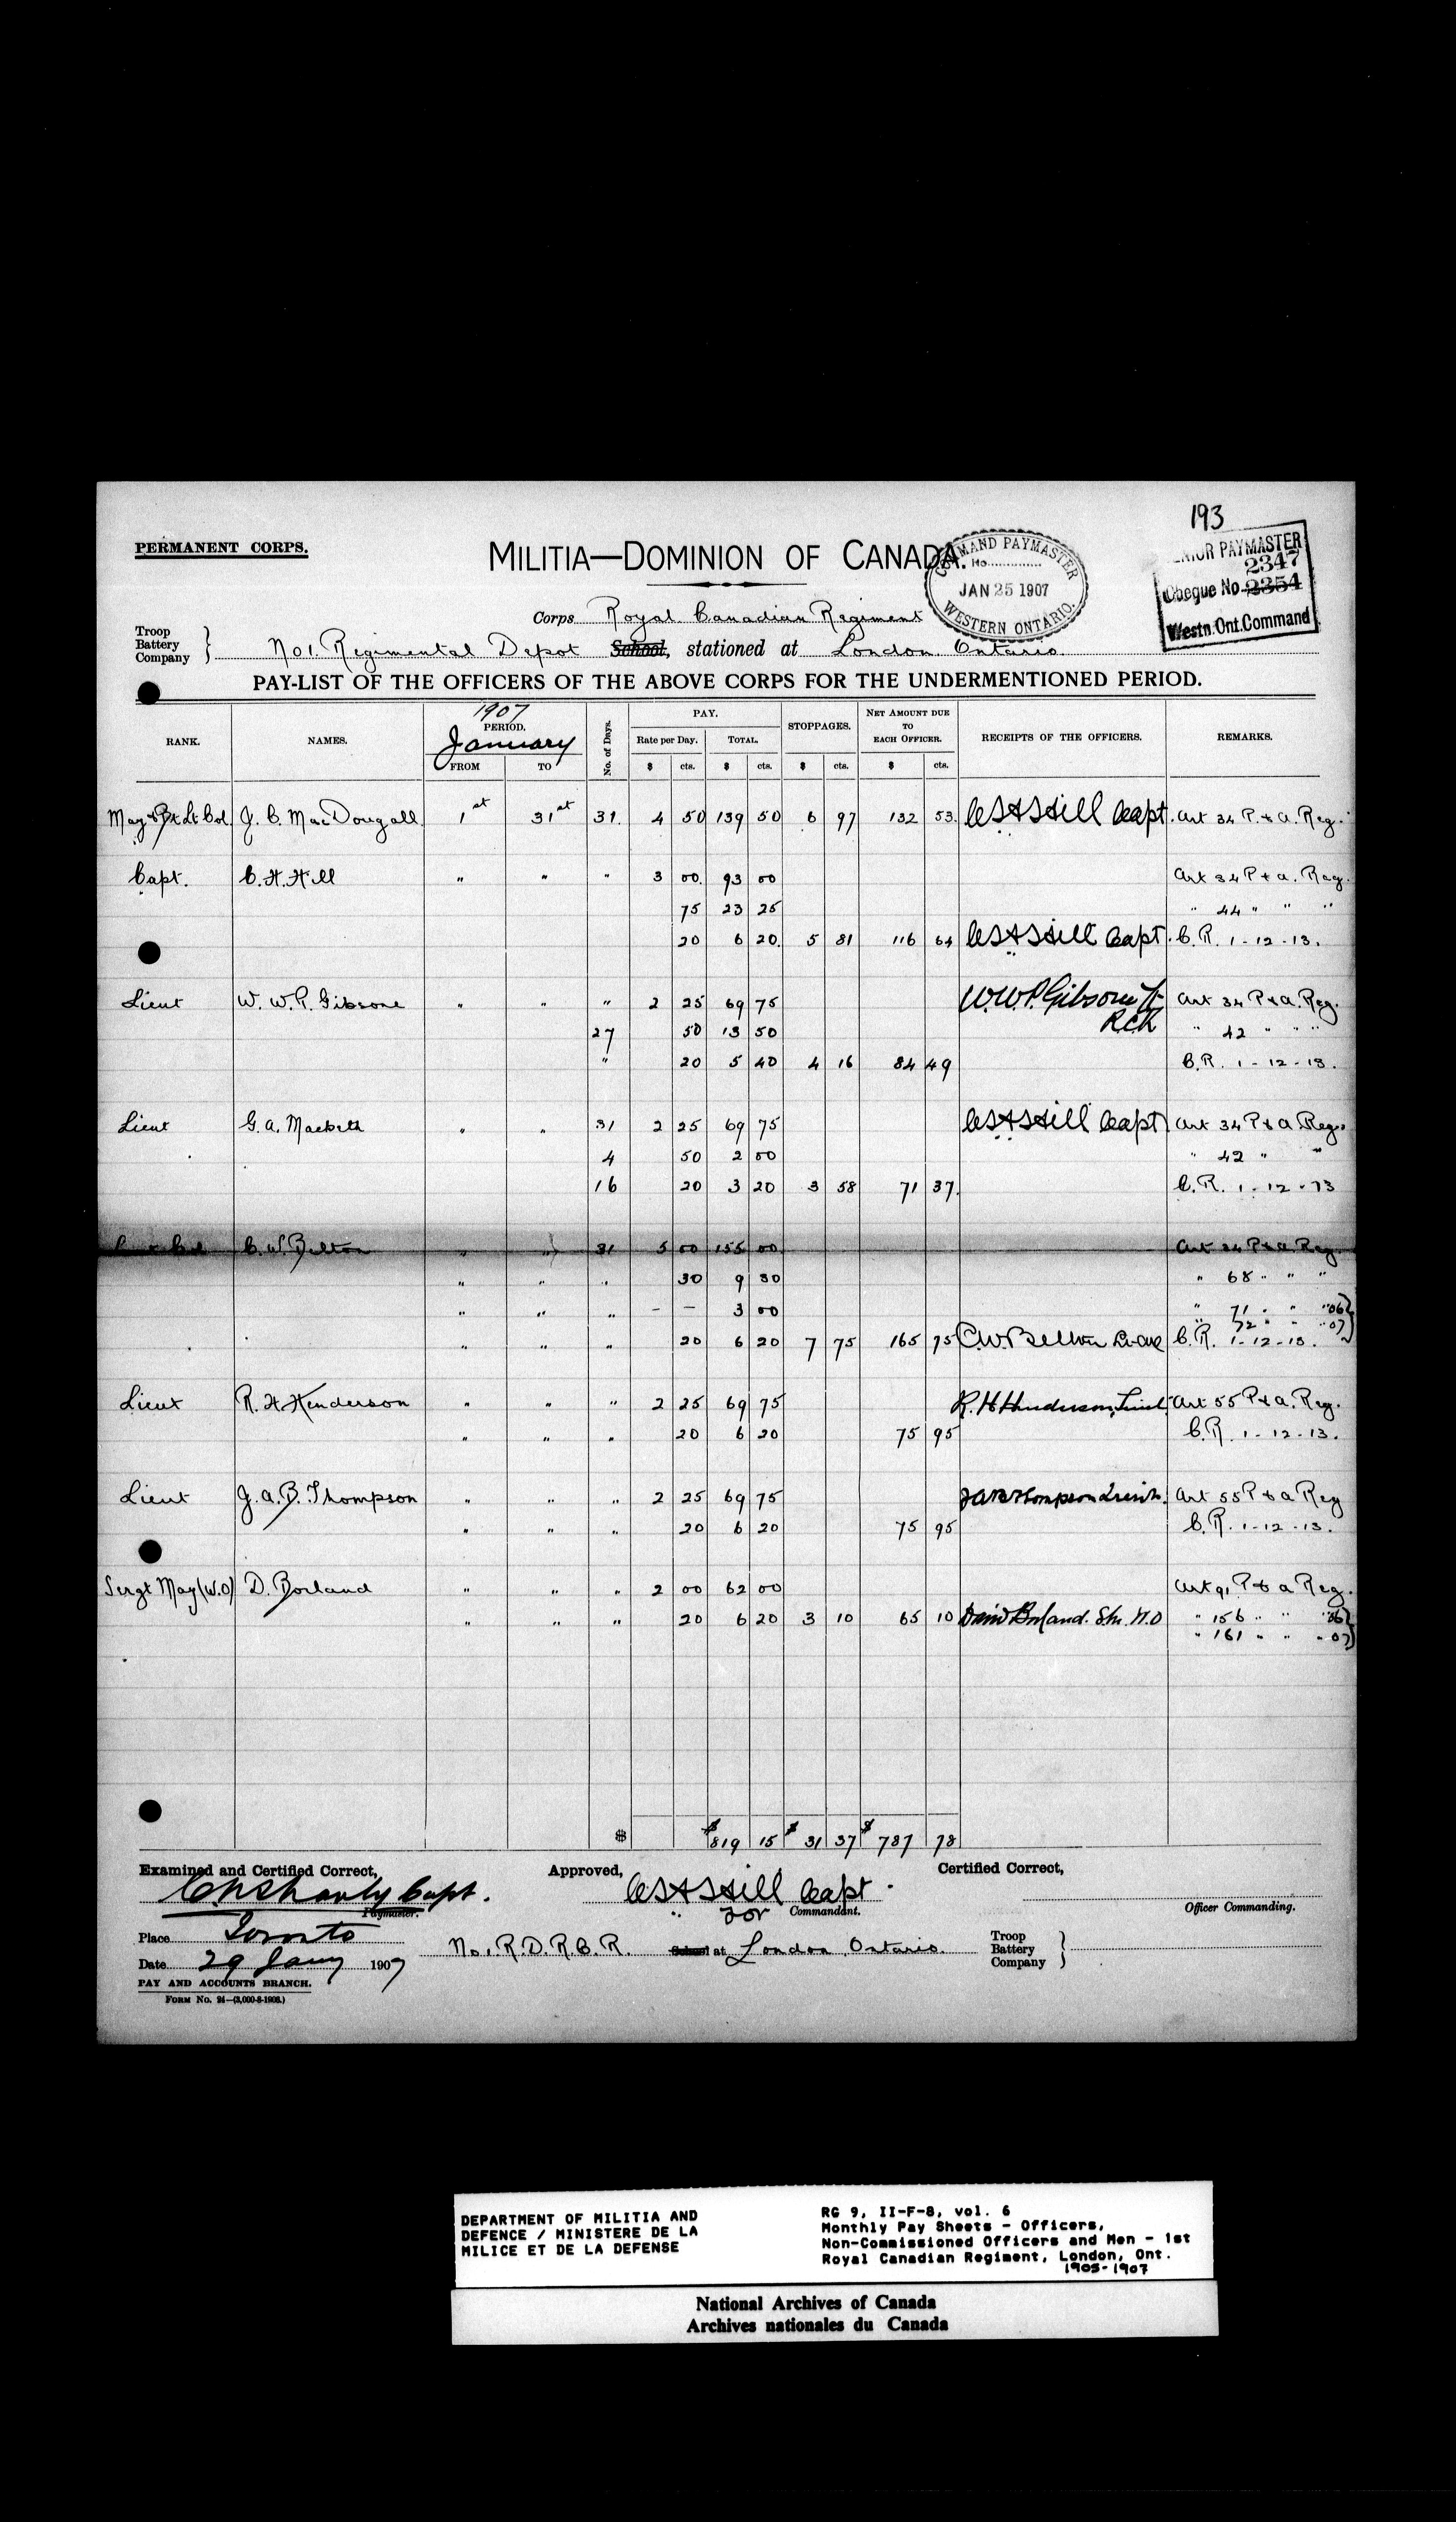 193
PERMANENT CORPS.
MILITIA—DOMINION OF CANADA.
COMMAND PAYMASTER
No..............
JAN 25 1907
WESTERN ONTARIO.
SENIOR PAYMASTER
2347
Cheque No 2354
Westn. Ont. Command
Corps Royal Canadian Regiment
Troop
Battery
Company } No 1. Regimental Depot School, stationed at London Ontario
PAY-LIST OF THE OFFICERS OF THE ABOVE CORPS FOR THE UNDERMENTIONED PERIOD.
RANK. NAMES. 1907 PERIOD. January FROM TO No. of Days. PAY. Rate per Day. TOTAL. STOPPAGES. NET AMOUNT DUE TO EACH OFFICER. RECEIPTS OF THE OFFICERS. REMARKS.
$ cts. $ cts. $ cts. $ cts.
Maj & Bt Lt Col. J. C. MacDougall 1st 31st 31. 4 50 139 50 6 97 132 53. C H Hill Capt. Art 34 P. & A. Reg.
Capt. C. H. Hill " " " 3 00. 93 00 Art 34 P & A. Reg.
75 23 25 " 44 " " "
20 6 20. 5 81 116 64 C H Hill Capt. C. R. 1-12-13.
Lieut W. W. P. Gibsone " " " 2 25 69 75 W.W.P. Gibsone Lt Art 34 P & A. Reg.
27 50 13 50 RCR " 42 " " "
" 20 5 40 4 16 84 49 C.R. 1-12-13.
Lieut G. A. Macbeth " " 31 2 25 69 75 C H Hill Capt Art 34 P & A Reg.
4 50 2 00 " 42 " "
16 20 3 20 3 58 71 37. C. R. 1-12-13
Lieut Col C. W. Belton " " 31 5 00 155 00 Art 34 P & A Reg
" " " 30 9 30 " 68 " " "
" " " - - 3 00 " 71 " " "06}
" 72 " " "07}
" " " 20 6 20 7 75 165 75 C.W. Belton Lt-Col C. R. 1-12-13.
Lieut R. H. Henderson " " " 2 25 69 75 R. H. Henderson, Lieut. Art 55 P & A. Reg.
" " " 20 6 20 75 95 C. R. 1-12-13.
Lieut J. A. B. Thompson " " " 2 25 69 75 JAB Thompson Lieut. Art 55 P & A Reg
" " " 20 6 20 75 95 C. R. 1-12-13.
Sergt Maj (W.O) D. Borland " " " 2 00 62 00 Art 91 P & A Reg.
" " " 20 6 20 3 10 65 10 David Borland. S.M. W.O " 156 " " "06}
" 161 " " "07}
$ $819 15 $31 37 $787 78
Examined and Certified Correct, Approved, Certified Correct,
C N Shanly Capt. C H Hill Capt.
Paymaster. for Commandant. Officer Commanding.
Place Toronto
No 1 R. D. R. C. R. School at London Ontario. Troop
Battery
Company }
Date 29 Jany 1907
PAY AND ACCOUNTS BRANCH.
FORM No. 24—(3,000-8-1906.)
DEPARTMENT OF MILITIA AND
DEFENCE / MINISTERE DE LA
MILICE ET DE LA DEFENSE
RG 9, II-F-8, vol. 6
Monthly Pay Sheets - Officers,
Non-Commissioned Officers and Men - 1st
Royal Canadian Regiment, London, Ont.
1905-1907
National Archives of Canada
Archives nationales du Canada